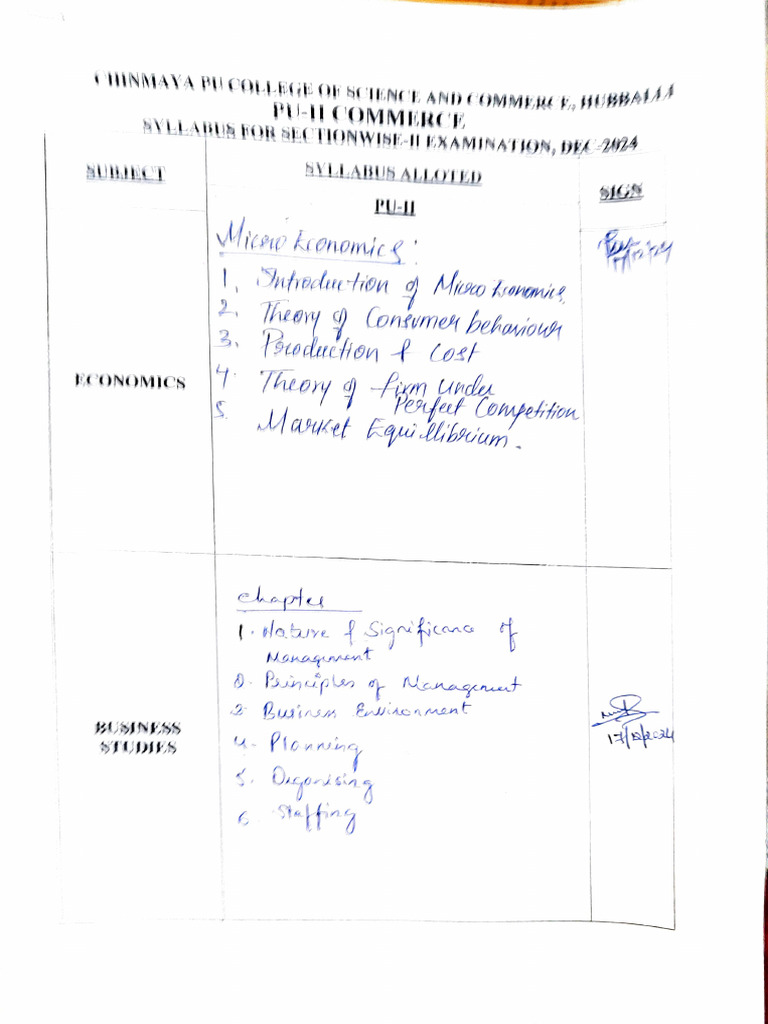 CHINMAYA PU COLLEGE OF SCIENCE AND COMMERCE, HUBBALLI
PU-II COMMERCE
SYLLABUS FOR SECTIONWISE-II EXAMINATION, DEC-2024
SUBJECT
SYLLABUS ALLOTED
SIGN
PU-II
ECONOMICS
Micro Economics:
1. Introduction of Micro Economics.
2. Theory of Consumer behaviour
3. Production & Cost
4. Theory of firm under
Perfect Competition
5. Market Equillibrium.
17/12/24
BUSINESS
STUDIES
Chapter
1. Nature & Significance of
Management
2. Principles of Management
3. Business Environment
4. Planning
5. Organising
6. Staffing
17/12/2024